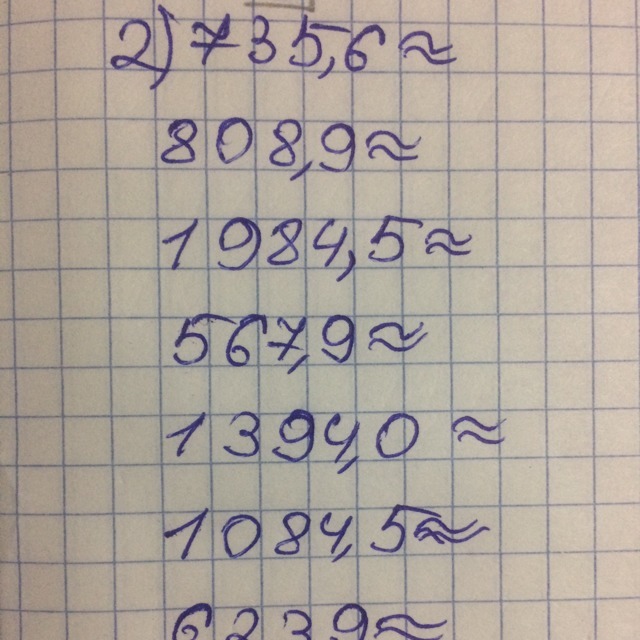 2) 735,6 ≈
808,9 ≈
1984,5 ≈
567,9 ≈
1394,0 ≈
1084,5 ≈
623,9 ≈